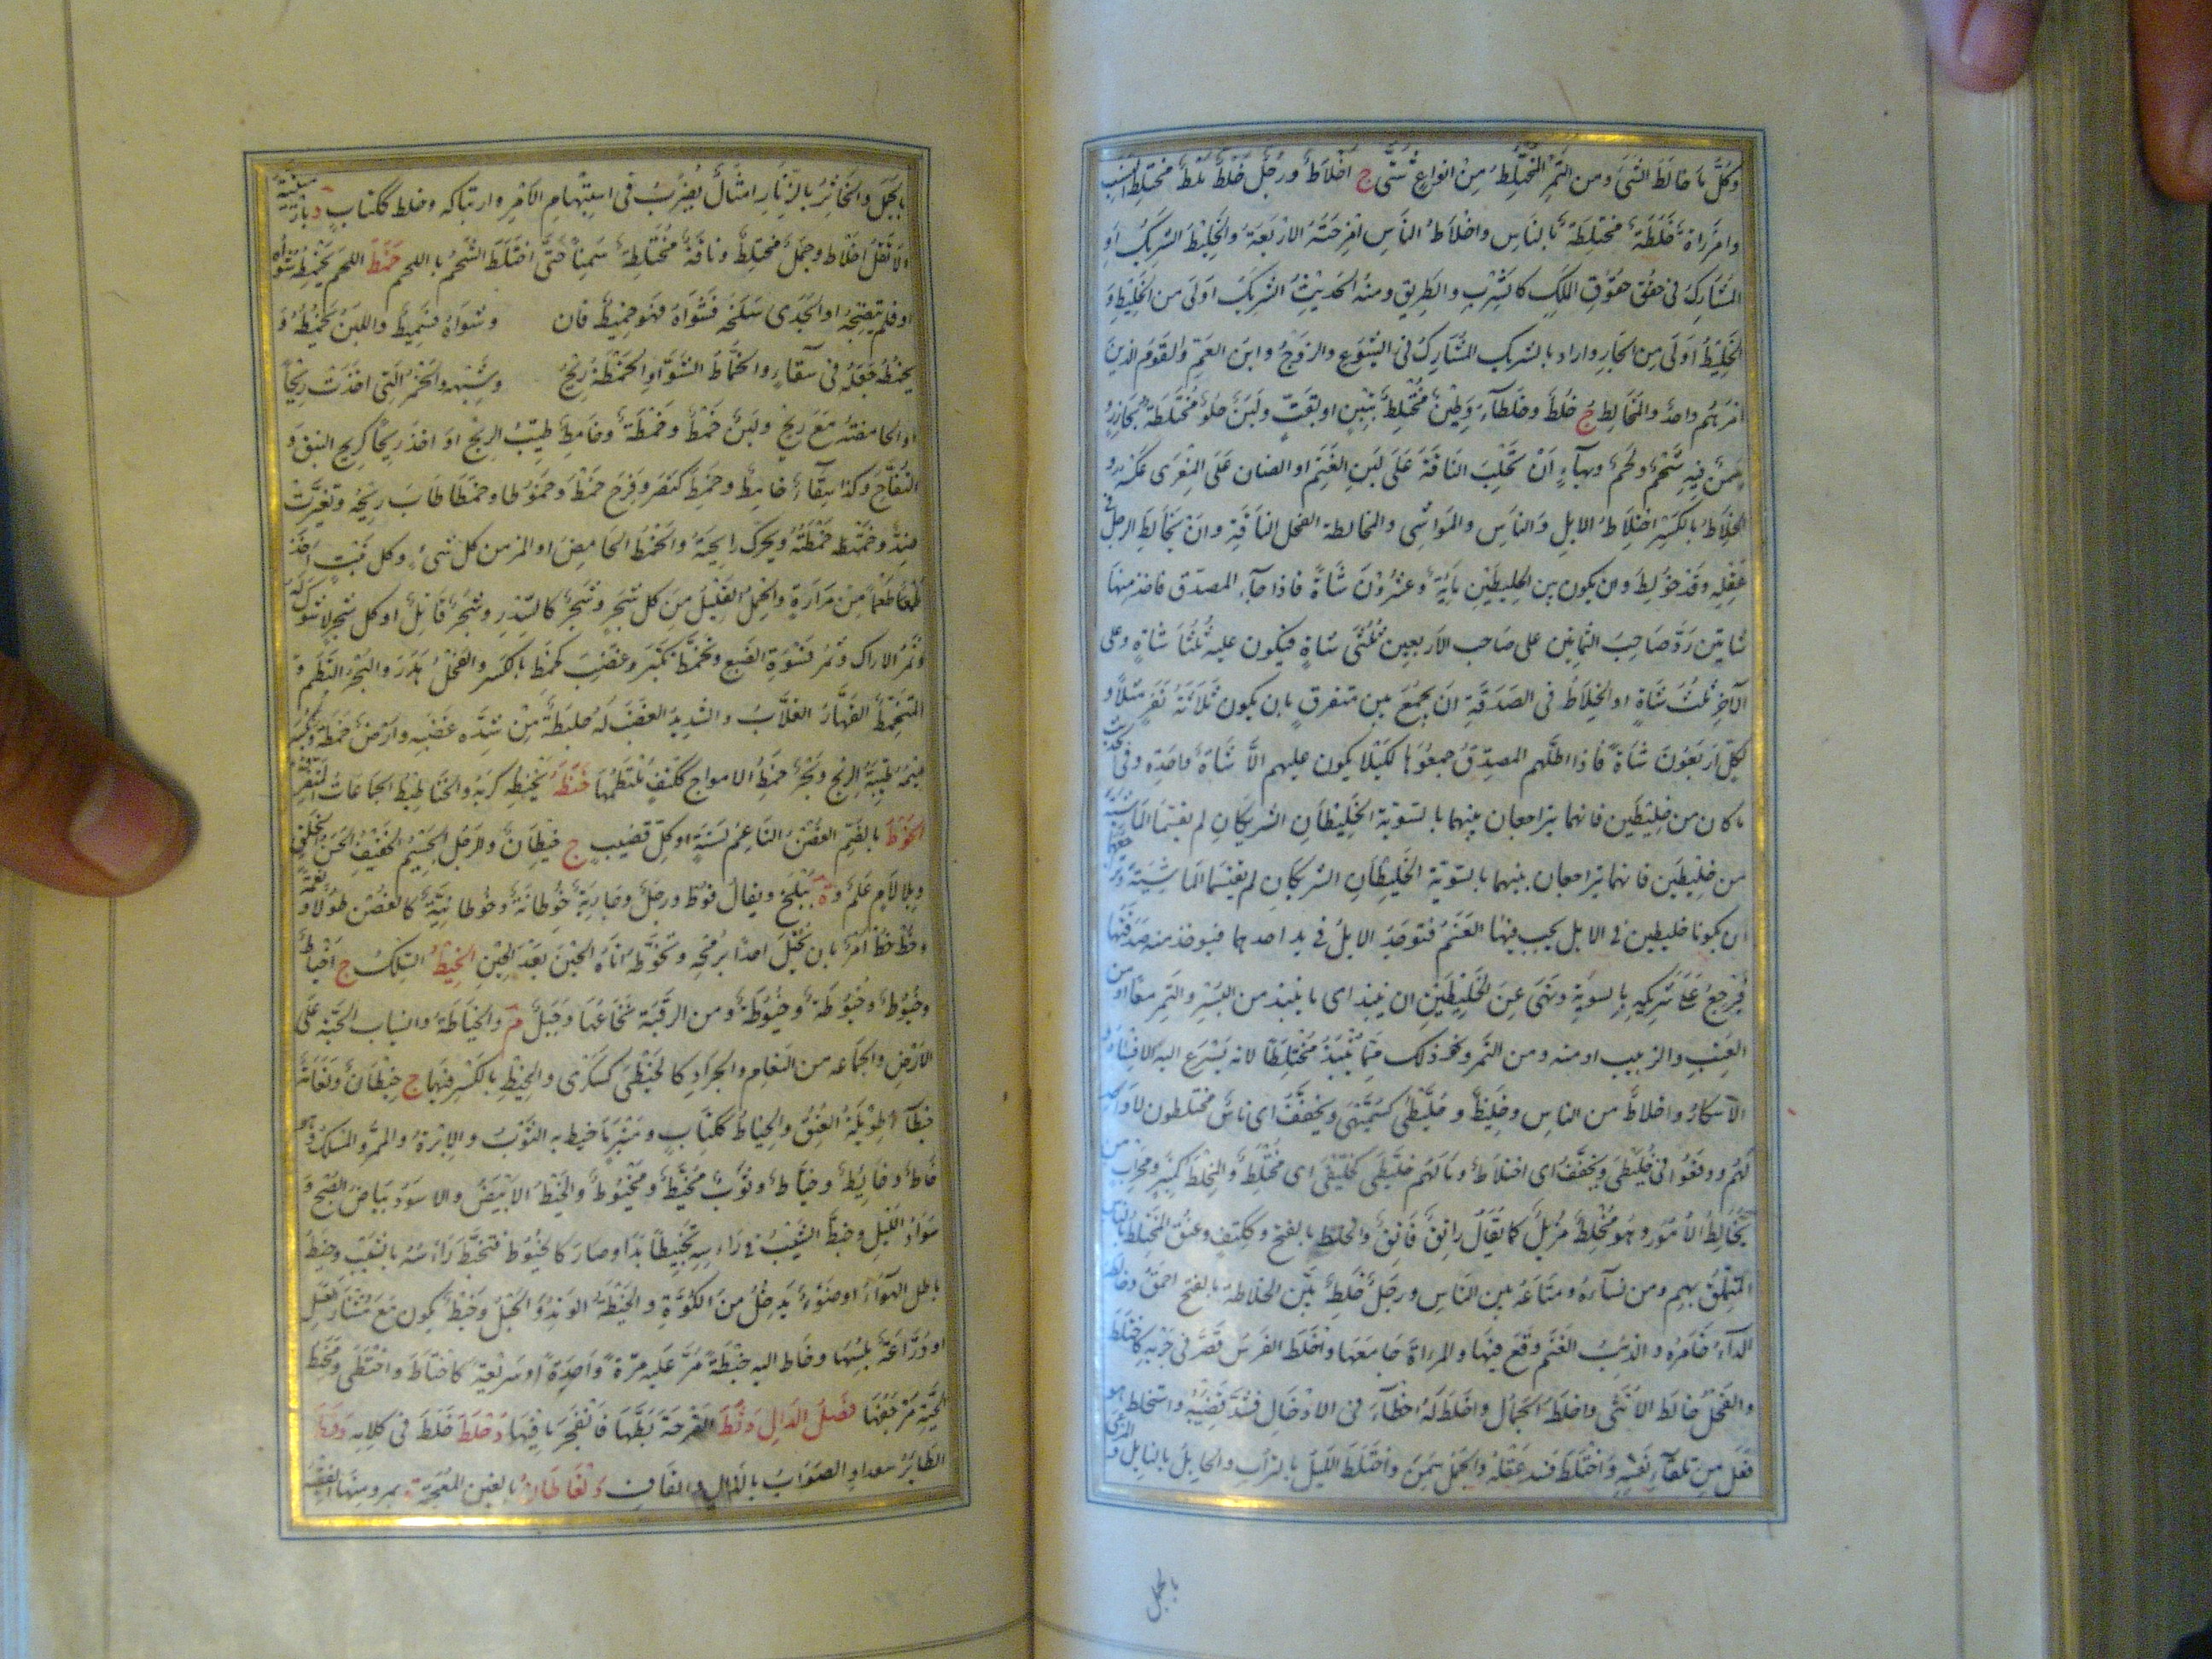 وكلّ ما خالط الشىَ ومن التمرِ المختلِطُ من انواعٍ شتّى ج اخلاطٌ ورجلٌ خَلْطٌ مَلْطٌ مختلِط النسب
وامراة خَلْطَةٌ مختلِطَةٌ بالناس واخلاطُ الناس امزجته الاربعة والخليط الشريك او
المشارك فى حقوق الملك كالشرب والطريق ومنه الحديث الشريك اولى من الخليط و
الخليط اولى من الجار واراد بالشريك المشارك فى الشيوع والزوجُ وابن العم والقوم الذين
امرهم واحد والمخالط ج خُلُطٌ وخلطاءُ وطينٌ مختلطٌ بتبنٍ او بقتٍّ ولبن حلو مختلط بحازر و
سمن فيه شحم ولحم وبهاءٍ ان تحلب الناقة على لبن الغنم او الضان على المعزى وعكسه و
الخلاط بالكسر اختلاط الابل والناس والمواشى والمخالطة الفحل الناقة وان يخالط الرجل فى
عقله وقد خولط وان يكون بين الخليطين مايةٌ وعشرون شاةً فاذا جاء المصدق فاخذ منها
شاتين ردّ صاحب الثمانين على صاحب الاربعين ثلثى شاةٍ فيكون عليه ثلثا شاةٍ وعلى
الآخر ثلث شاةٍ او الخلاط فى الصدقة ان يجمع بين متفرقٍ بان يكون ثلاثة نفرٍ مثلاً و
لكلٍّ اربعون شاة فاذا اظلّهم المصدق جمعوها لكيلا يكون عليهم الّا شاةٌ واحدة وفى الحديث
ما كان من خليطين فانهما يتراجعان بينهما بالسوية الخليطان الشريكان لم يقتسما الماشية
من خليطين فانهما يتراجعان بينهما بالسوية الخليطان الشريكان لم يقتسما الماشية
ان يكونا خليطين فى الابل يجب فيها الغنم فتوجد الابل فى يد احدهما فيوخذ منه صدقتها
فيرجع على شريكه بالسوية ونهى عن الخليطين ان ينبذا اى ما ينبذ من البسر والتمر معًا او من
العنب والزبيب او منه ومن التمر ونحو ذلك مما ينبذ مختلطًا لانه يسرع اليه
الاسكار واخلاط من الناس وخليط و خُلّيطى كسُمّيهى ويخفّف اى ناس مختلطون لا واحد
لهم ووقعوا فى خليطى ويخفف اى اختلاط ومالهم خليطى كخليفى اى مختلط والمخلط كمنبر ومحراب من
يخالط الامور وهو مخلط مزيل كما يقال راتق فاتق والخلط بالفتح وككتف وعنق المختلط بالناس
المتملق بهم ومن نساءه ومتاعه بين الناس ورجل خلط بيّن الخلاطة بالفتح احمق وخالطه
الداء خامره والذئب الغنم وقع فيها والمراة جامعها واخلط الفرس قصر فى جريه كاختلط
والفحل خالط الانثى واخلطه الجمال واخلط له اخطاءَ فى الادخال فسدد قضيبه واستخلط هو
فعل من تلقاءِ نفسه واختلط فسد عقله والجمل سمن واختلط الليل بالتراب والحابل بالنابل و المرعى
بالهمل
بالهمل والخاثر بالزباد امثال يضرب فى استبهام الامر وارتباكه وخلط ككتاب د بارمينية
لا تقل اخلاط وجمل مختلط وناقة مختلطة سمنا حتى اختلط الشحم باللحم خَمَطَ اللحم يخمطه شواه
او فلم ينضجه او الجدى سلخه فشواه فهو خميط فان وشواه فسميط واللبن يخمطه و
يخمطه جعله فى سقاءٍ والخماط الشواء والخمطة ريح وشبهه والخمر التى اخذت ريحًا
او الحامضة مع ريح ولبن خمط وخمطة وخامط طيب الريح او اخذ ريحًا كريح النبق و
التفاح وكذا سقاء خامط وخمط كنصر وفرح خمطًا وخموطا وخمطًا طاب ريحه وتغيرت
ضد وخمطه خمطته ويحرك رايحته والخمط الحامض او المر من كل شىءٍ وكل نبت اخذ
طعمًا من مرارة والحمل القليل من كل شجر وشجر كالسدر وشجر قاتل او كل شجر لا شوك له
وثمر الاراك وثمر فسوة الضبع وتخمط تكبر وغضب كخمط بالكسر والفحل هدر والبحر التطم و
المتخمط القهار الغلاب والشديد الغضب له جلبة من شدة غضبه وارض خمطة وتكسر
ميمه طيبة الريح وبحر خمط الامواج ككتف ملتطمها خَنَطَه يخنطه كربه والخناطيط الجماعات المتفرقة
الخُوطُ بالضم الغصن الناعم لسنة او كل قضيب ج خيطان والرجل الجسيم الخفيف الحسن الخلق
وبلا لام علم و ة ببلخ ويقال قوط ورجل وجارية خوطانة وخوطانية كالغصن طولا و نعمة
وخط خط امر بان يختل احدا برمحه وتخوطه اتاه الحين بعد الحين الخَيْطُ السلك ج اخياط
وخيوط وخيوطة وخُيُوطَة ومن الرقبة نخاعها وجبل م والخياطة وانسياب الحية على
الارض والجماعة من النعام والجراد كالخيطى كسكرى والخيط بالكسر فيهما ج خيطان ونعامة
خيطاء طويلة العنق والخياط ككتاب ومنبر ما خيط به الثوب والابرة والممر والمسلك وهو
خاط وخايط وخياط وثوب مخيط ومخيوط والخيط الابيض والاسود بياض الصبح و
سواد الليل وخيط الشيب فى راسه تخييطًا بدا او صار كالخيوط فتخيط راسه بالشيب وخيط
باطل الهواء او ضوء يدخل من الكوة والخيطة الوتد والحبل وخيط يكون مع مشتار العسل
او دراعة يلبسها وخاط اليه خيطة مر عليه مرة واحدة او سريعة كاختاط واختطى ومخيط
الحية مزحفها فصل الدال دَثَطَ القرحة بطها فانفجر ما فيها دَحْلَطَ خلط فى كلامه
الطاير سفد او الصواب بالذال والقاف دَلْغَاطَانُ بالغين المعجمة ة بمرو منها الفقيه